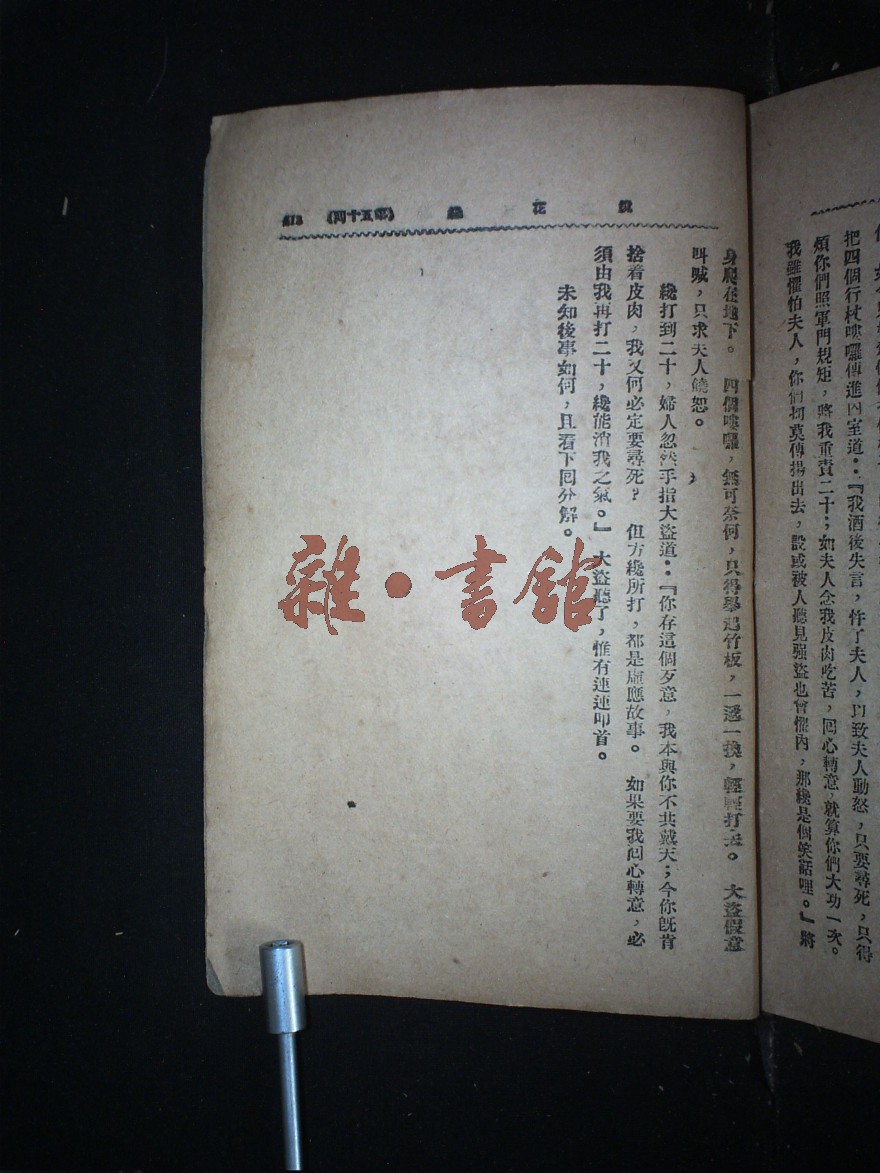 把四個行杖嘍囉傳進內室道：『我酒後失言，忤了夫人，以致夫人動怒，只要尋死，只得
煩你們照軍門規矩，將我重責二十；如夫人念我皮肉吃苦，回心轉意，就算你們大功一次。
我雖懼怕夫人，你們切莫傳揚出去，設或被人聽見强盜也會懼內，那纔是個笑話哩。』將
鏡花緣 （第五十回）
身爬在地下。 四個嘍囉，無可奈何，只得舉起竹板，一遞一換，輕輕打去。 大盜假意
叫喊，只求夫人饒恕。
纔打到二十，婦人忽然手指大盜道：『你存這個歹意，我本與你不共戴天；今你既肯
捨着皮肉，我又何必定要尋死？ 但方纔所打，都是虛應故事。 如果要我回心轉意，必
須由我再打二十，纔能消我之氣。』 大盜聽了，惟有連連叩首。
未知後事如何，且看下回分解。
雜·書舘